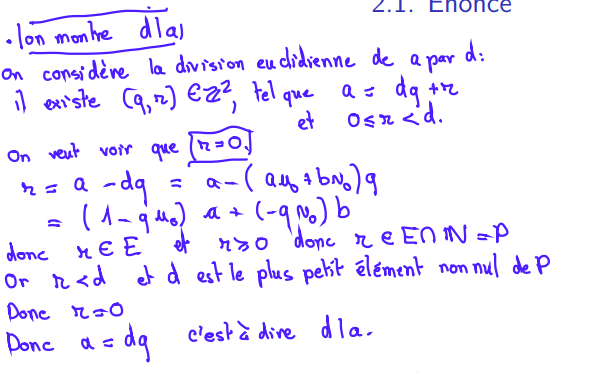 2.1. Énoncé
. (on montre d|a)
On considère la division euclidienne de a par d:
il existe (q,r) ∈ ℤ², tel que a = dq + r
et 0 ≤ r < d.
On veut voir que r = 0.
r = a - dq = a - (au₀ + bv₀)q
= (1 - q u₀) a + (-q v₀) b
donc r ∈ E et r ≥ 0 donc r ∈ E ∩ ℕ = P
Or r < d et d est le plus petit élément non nul de P
Donc r = 0
Donc a = dq c'est à dire d|a.